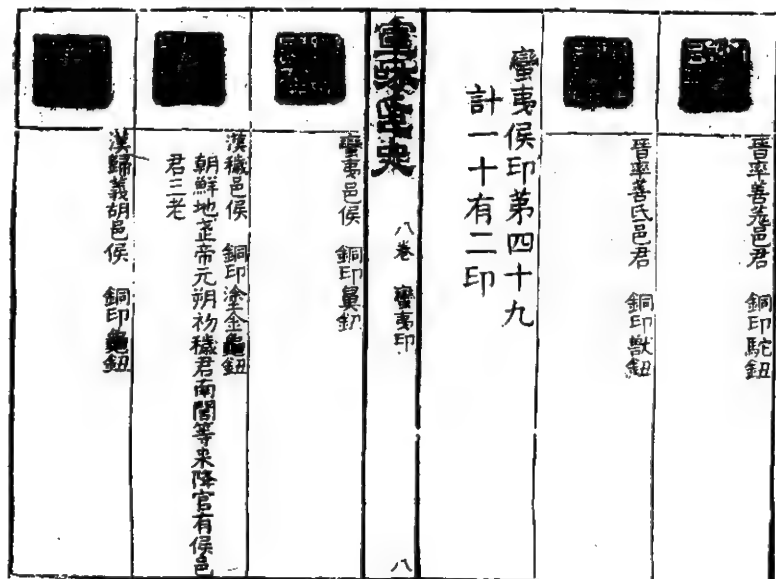 晉率善羌邑君　銅印駝鈕
晉率善氐邑君　銅印獸鈕
蠻夷侯印第四十九
計一十有二印
八卷　蠻夷印
八
蠻夷邑侯　銅印鼻鈕
漢穢邑侯　銅印塗金龜鈕
朝鮮地武帝元朔初穢君南閭等來降官有侯邑
君三老
漢歸義胡邑侯　銅印龜鈕